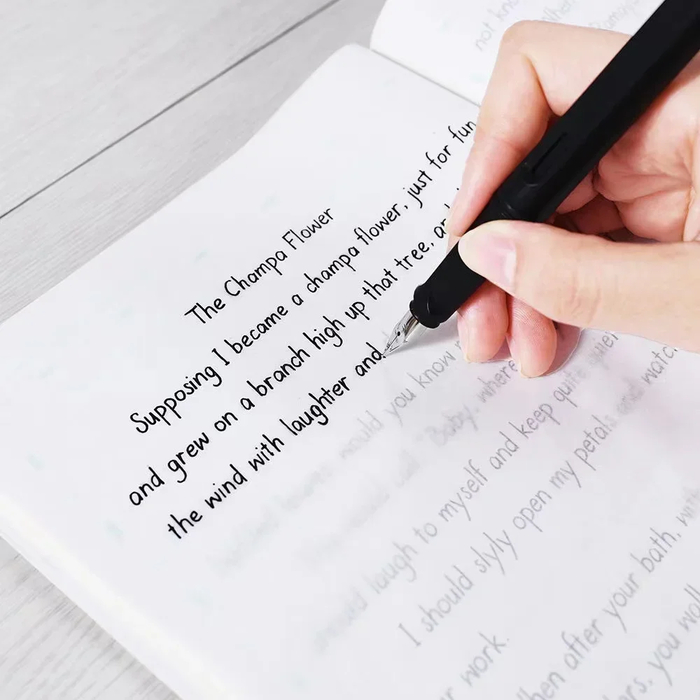 not
The Champa Flower
Supposing I became a champa flower, just for fun,
and grew on a branch high up that tree, an
the wind with laughter and
would you know
"Baby, where
laugh to myself and keep quite
I should slyly open my petals and watch
work.
when after your bath, wi
you wal